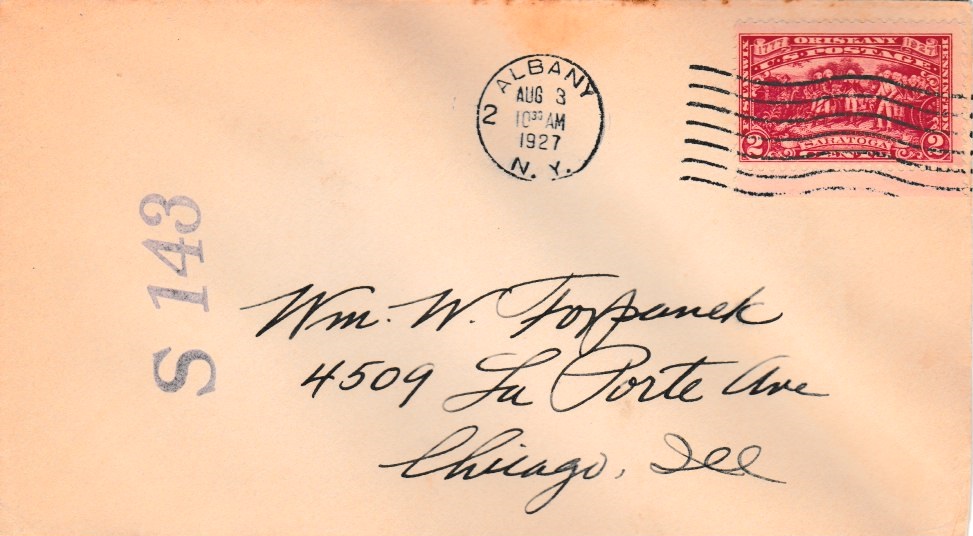 ALBANY
2
AUG 3
10³⁰ AM
1927
N. Y.
1777 ORISKANY 1927
U·S·POSTAGE
STANWIX
BENNINGTON
2 SARATOGA 2
CENTS
S 143
Wm. W.
4509 La Porte Ave
Chicago, Ill